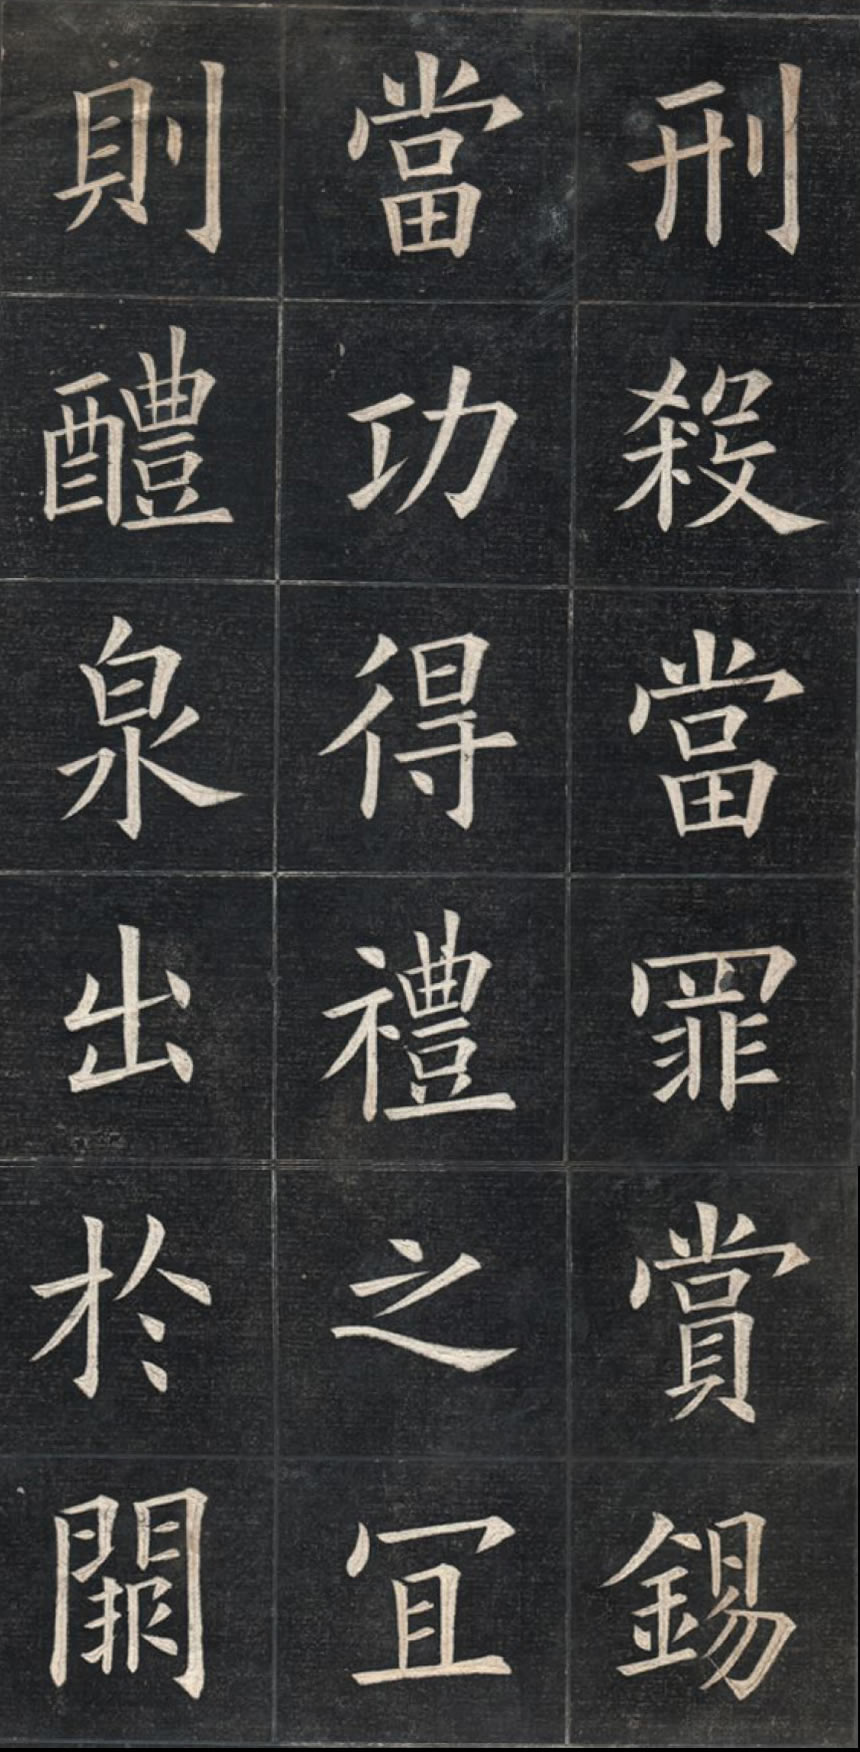 刑殺當罪賞錫
當功得禮之冝
則醴泉出於闕